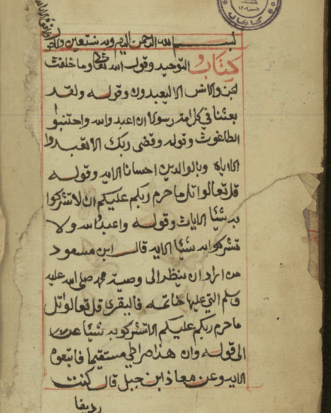 بسم الله الرحمن الرحيم وبه نستعين
كتاب التوحيد وقول الله تعالى وما خلقت
الجن والانس الا ليعبدون وقوله ولقد
بعثنا في كل امة رسولا ان اعبدوا الله واجتنبوا
الطاغوت وقوله وقضى ربك الا تعبدوا
الا اياه وبالوالدين احسانا الاية وقوله
قل تعالوا اتل ما حرم ربكم عليكم ان لا تشركوا
به شيئا الايات وقوله واعبدوا الله ولا
تشركوا به شيئا الاية قال ابن مسعود
من اراد ان ينظر الى وصية محمد صلى الله عليه
وسلم التي عليها خاتمه فليقرى قل تعالوا اتل
ما حرم ربكم عليكم الا تشركوا به شيئا
الى قوله وان هذا صراطي مستقيما فاتبعوه
الاية وعن معاذ ابن جبل قال كنت
رديفا